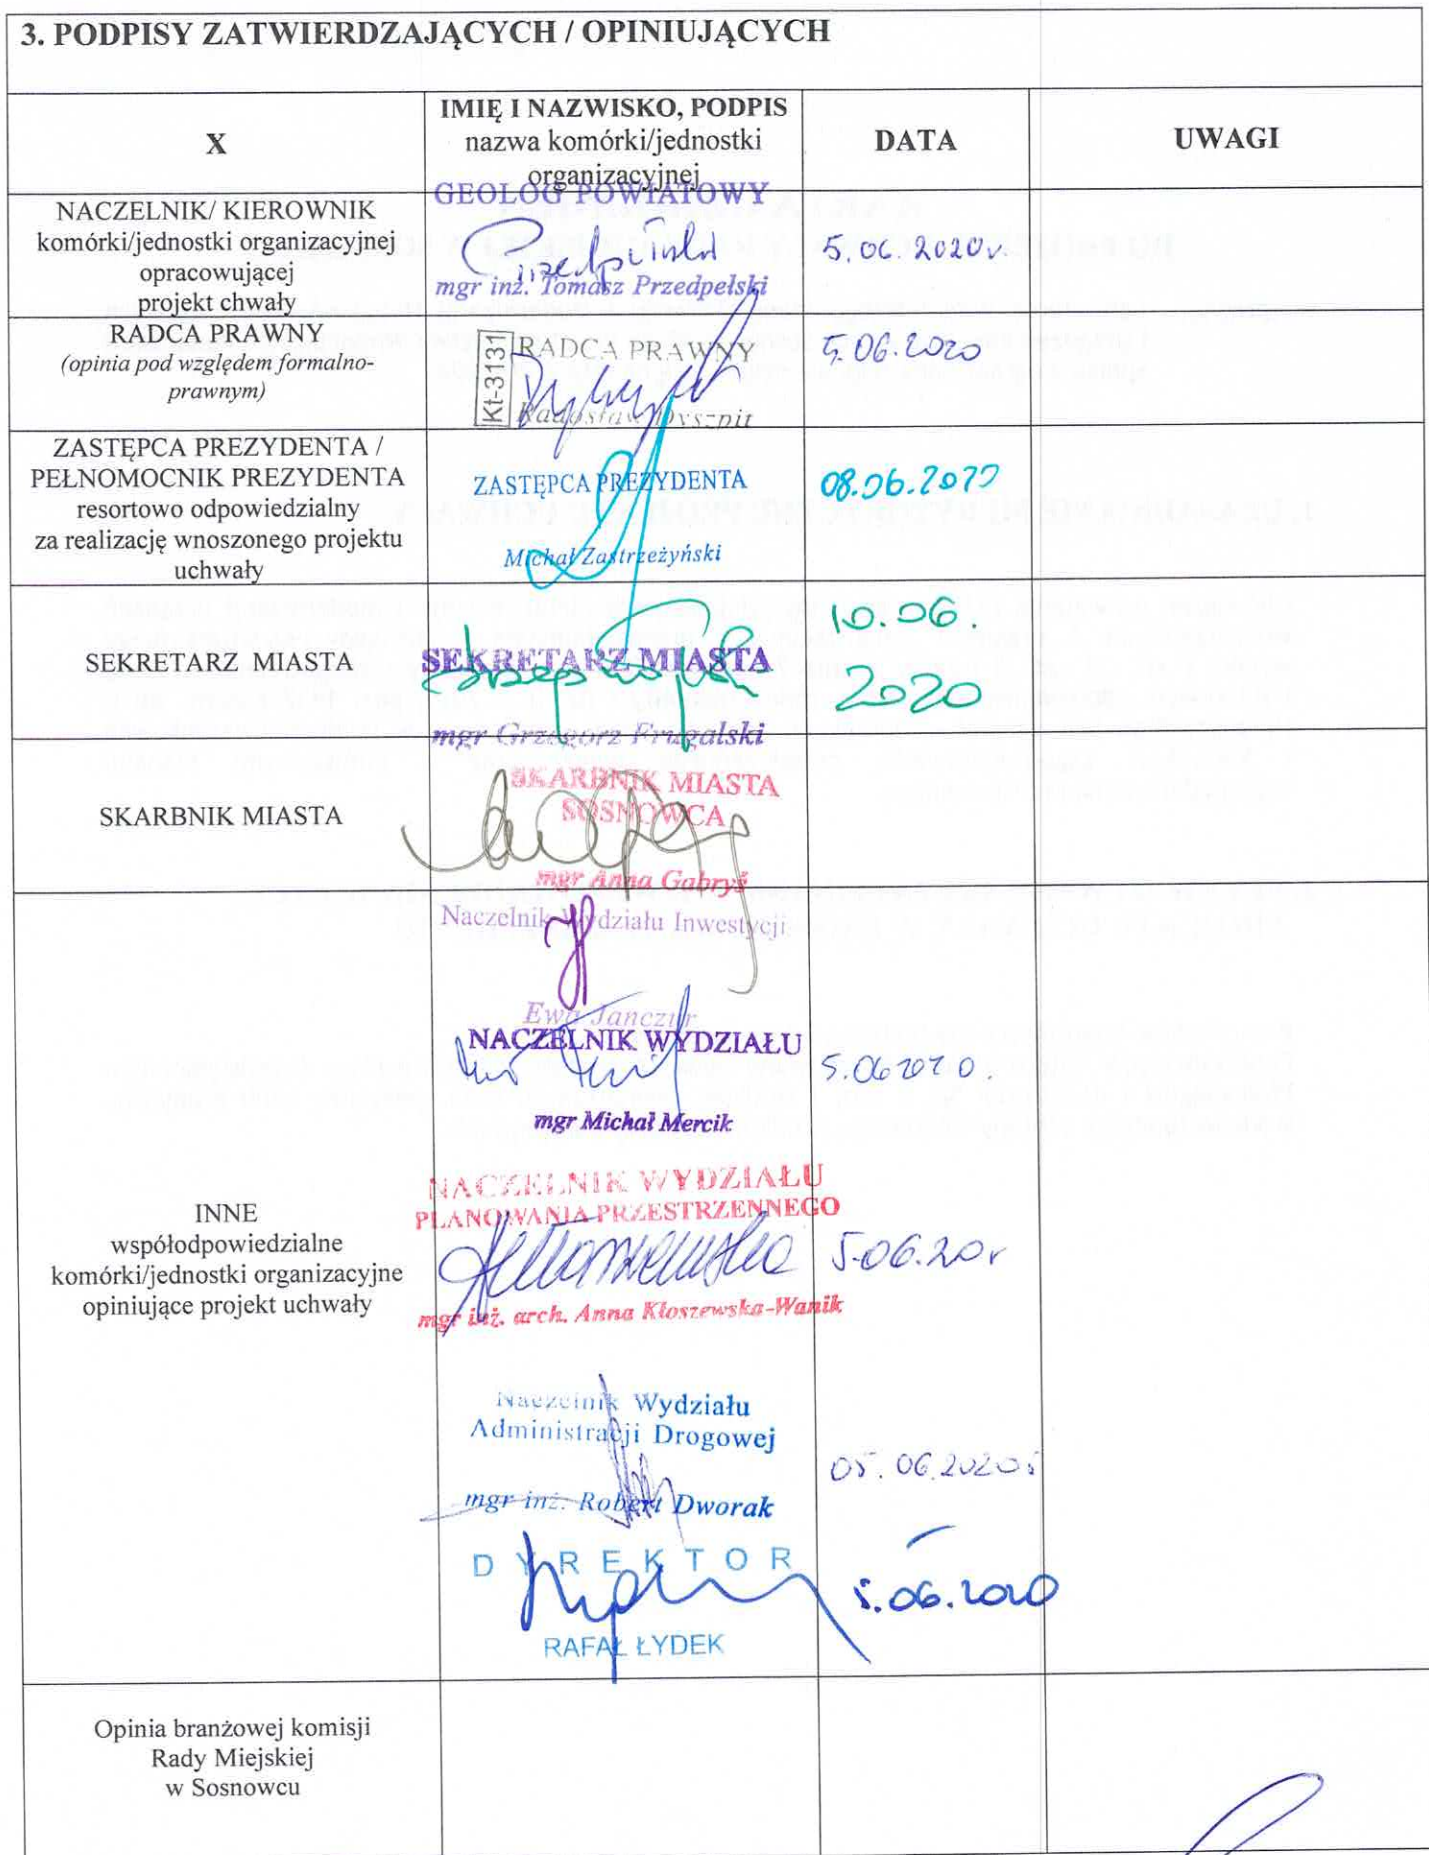 3. PODPISY ZATWIERDZAJĄCYCH / OPINIUJĄCYCH
X
IMIĘ I NAZWISKO, PODPIS
nazwa komórki/jednostki
organizacyjnej
DATA
UWAGI
NACZELNIK/ KIEROWNIK
komórki/jednostki organizacyjnej
opracowującej
projekt chwały
GEOLOG POWIATOWY
mgr inż. Tomasz Przedpełski
5.06.2020r.
RADCA PRAWNY
(opinia pod względem formalno-
prawnym)
Kt-3131
RADCA PRAWNY
Radosław Dyszpit
5.06.2020
ZASTĘPCA PREZYDENTA /
PEŁNOMOCNIK PREZYDENTA
resortowo odpowiedzialny
za realizację wnoszonego projektu
uchwały
ZASTĘPCA PREZYDENTA
Michał Zastrzeżyński
08.06.2020
SEKRETARZ MIASTA
SEKRETARZ MIASTA
mgr Grzegorz Frugalski
10.06.
2020
SKARBNIK MIASTA
SKARBNIK MIASTA
SOSNOWCA
mgr Anna Gabryś
INNE
współodpowiedzialne
komórki/jednostki organizacyjne
opiniujące projekt uchwały
Naczelnik Wydziału Inwestycji
Ewa Janczur
NACZELNIK WYDZIAŁU
mgr Michał Mercik
5.06 2020.
NACZELNIK WYDZIAŁU
PLANOWANIA PRZESTRZENNEGO
mgr inż. arch. Anna Kłoszewska-Wanik
5.06.20r
Naczelnik Wydziału
Administracji Drogowej
mgr inż. Robert Dworak
05.06.2020r
DYREKTOR
RAFAŁ ŁYDEK
5.06.2020
Opinia branżowej komisji
Rady Miejskiej
w Sosnowcu